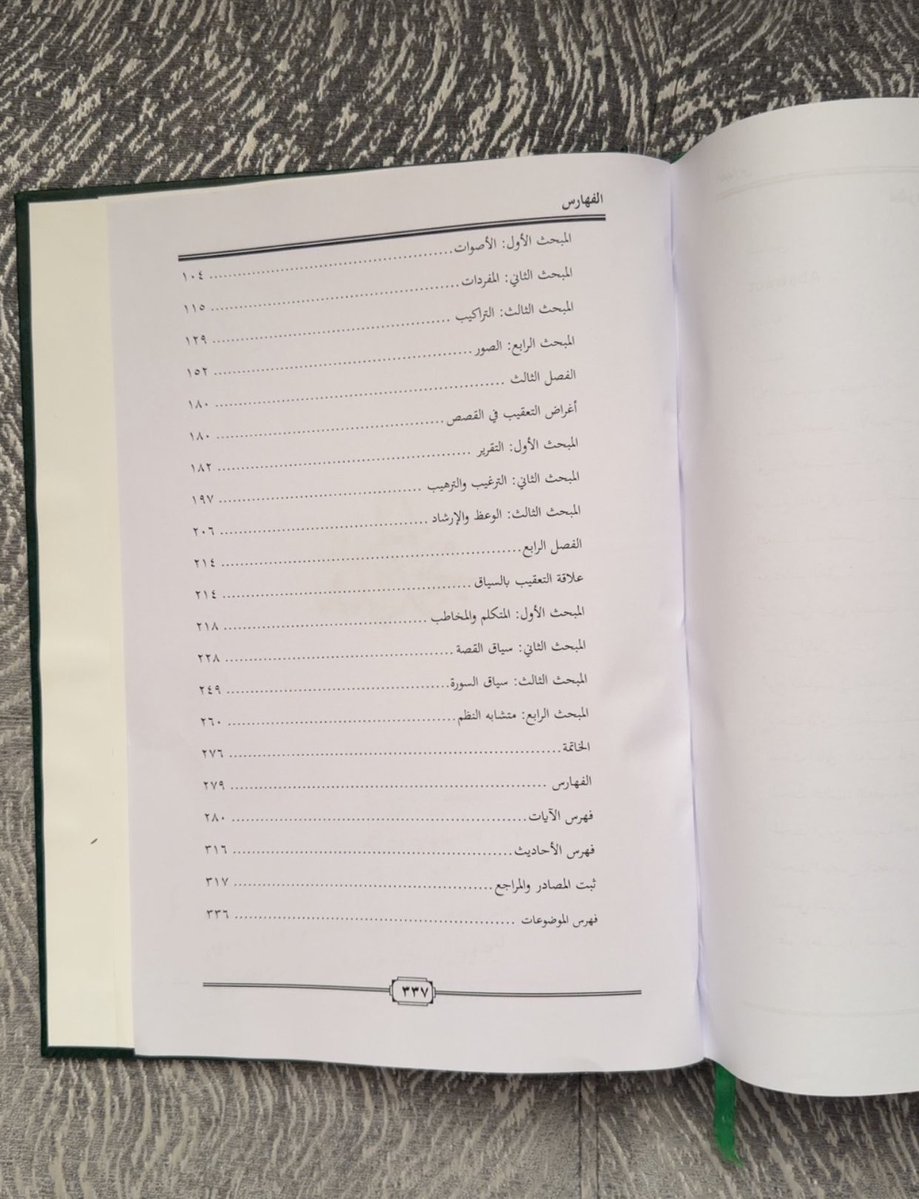 الفهارس
المبحث الأول: الأصوات ............ ١٠٤
المبحث الثاني: المفردات ............ ١١٥
المبحث الثالث: التراكيب ............ ١٢٩
المبحث الرابع: الصور ............ ١٥٢
الفصل الثالث ............ ١٨٠
أغراض التعقيب في القصص ............ ١٨٠
المبحث الأول: التقرير ............ ١٨٢
المبحث الثاني: الترغيب والترهيب ............ ١٩٧
المبحث الثالث: الوعظ والإرشاد ............ ٢٠٦
الفصل الرابع ............ ٢١٤
علاقة التعقيب بالسياق ............ ٢١٤
المبحث الأول: المتكلم والمخاطب ............ ٢١٨
المبحث الثاني: سياق القصة ............ ٢٢٨
المبحث الثالث: سياق السورة ............ ٢٤٩
المبحث الرابع: متشابه النظم ............ ٢٦٠
الخاتمة ............ ٢٧٦
الفهارس ............ ٢٧٩
فهرس الآيات ............ ٢٨٠
فهرس الأحاديث ............ ٣١٦
ثبت المصادر والمراجع ............ ٣١٧
فهرس الموضوعات ............ ٣٣٦
٣٣٧